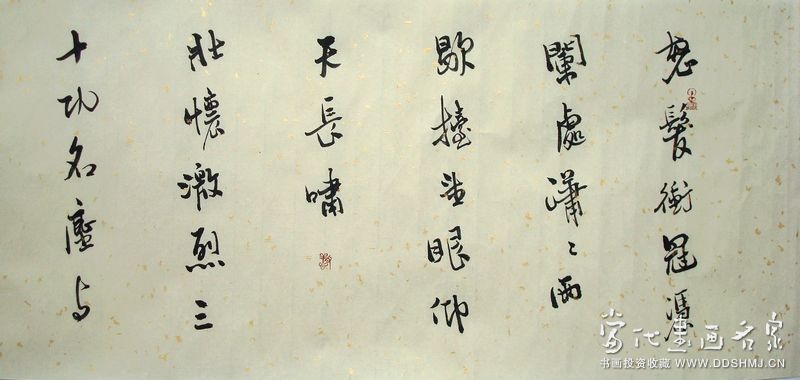 怒髮衝冠憑
闌處瀟〻雨
歇擡望眼仰
天長嘯
壯懷激烈三
十功名塵与
當代書画名家
书画投资收藏 WWW.DDSHMJ.CN